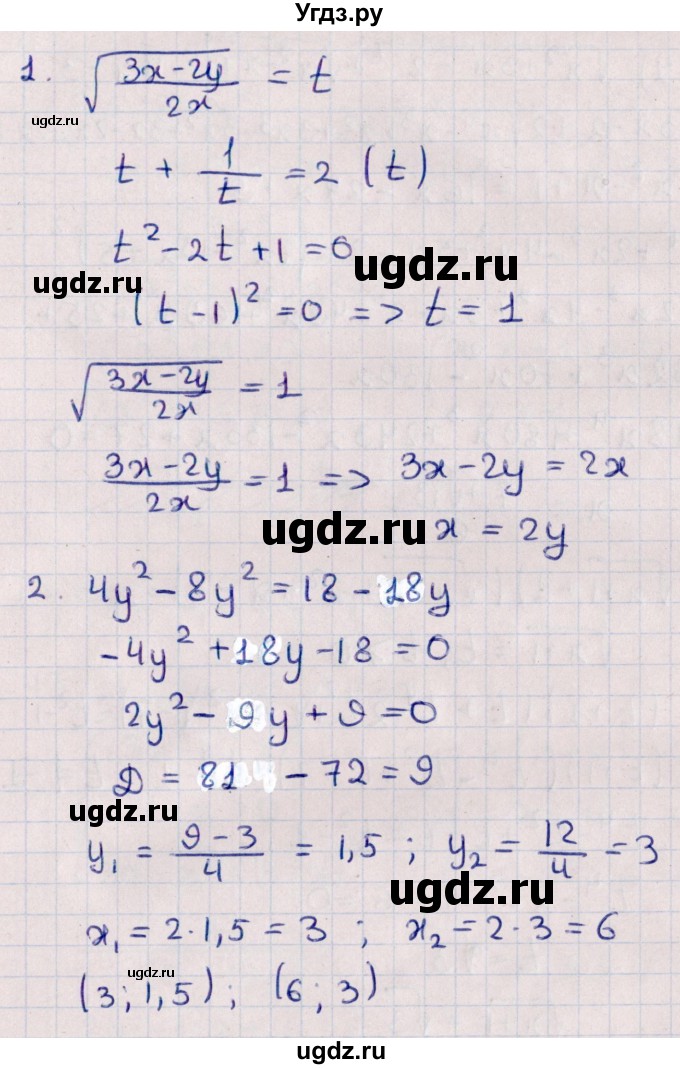 Угдз.ру
1. √((3x-2y)/(2x)) = t
ugdz.ru
t + 1/t = 2 (t)
t² - 2t + 1 = 0
ugdz.ru
ugdz.ru
(t-1)² = 0 => t = 1
√((3x-2y)/(2x)) = 1
(3x-2y)/(2x) = 1 => 3x-2y = 2x
ugdz.ru
x = 2y
2. 4y² - 8y² = 18 - 18y
-4y² + 18y - 18 = 0
2y² - 9y + 9 = 0
Д = 81 - 72 = 9
ugdz.ru
y₁ = (9-3)/4 = 1,5 ; y₂ = 12/4 = 3
ugdz.ru
x₁ = 2·1,5 = 3 ; x₂ = 2·3 = 6
ugdz.ru
(3; 1,5) ; (6; 3)
ugdz.ru